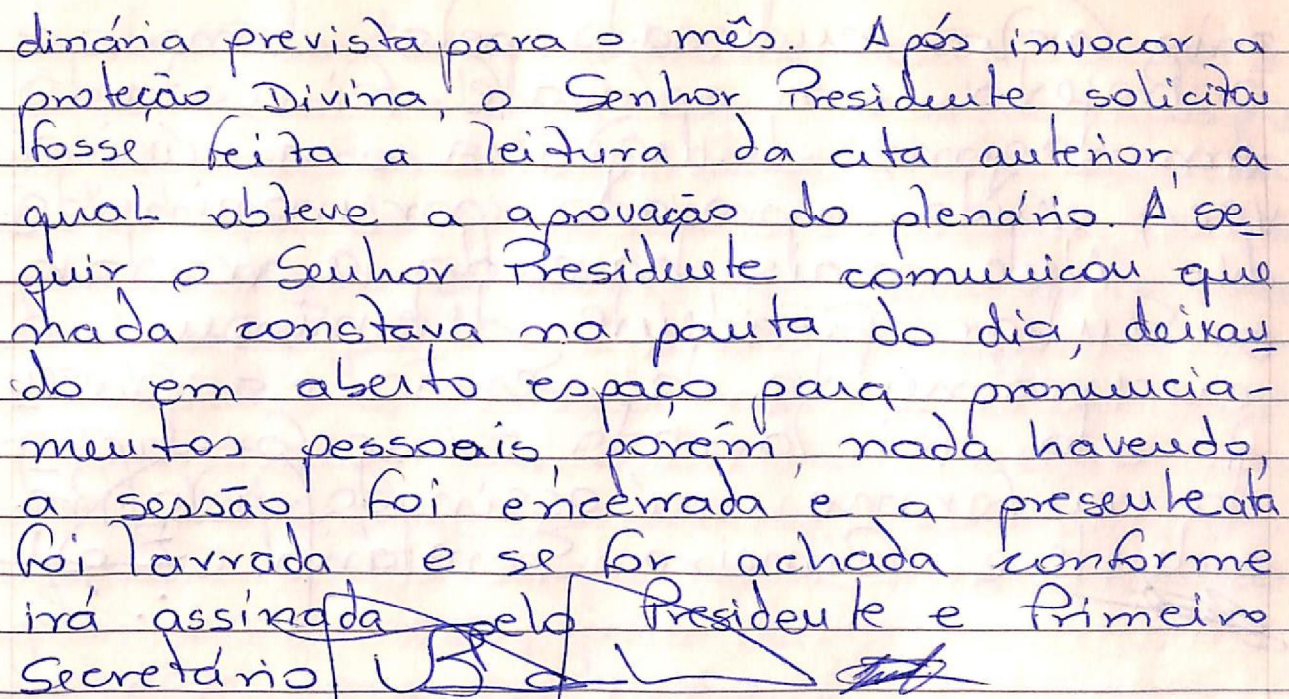 dinária prevista para o mês. Após invocar a
proteção Divina, o Senhor Presidente solicitou
fosse feita a leitura da ata anterior, a
qual obteve a aprovação do plenário. A se
guir o Senhor Presidente comunicou que
nada constava na pauta do dia, deixan
do em aberto espaço para pronuncia-
mentos pessoais, porém, nada havendo,
a sessão foi encerrada e a presente ata
foi lavrada e se for achada conforme
irá assinada pelo Presidente e Primeiro
Secretário